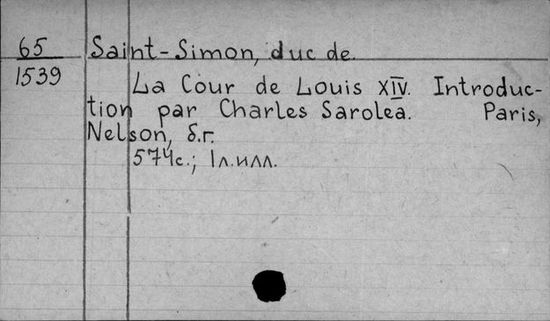 65
1539
Saint-Simon, duc de.
La Cour de Louis XIV. Introduc-
tion par Charles Sarolea. Paris,
Nelson, б.г.
574с.; 1л.илл.